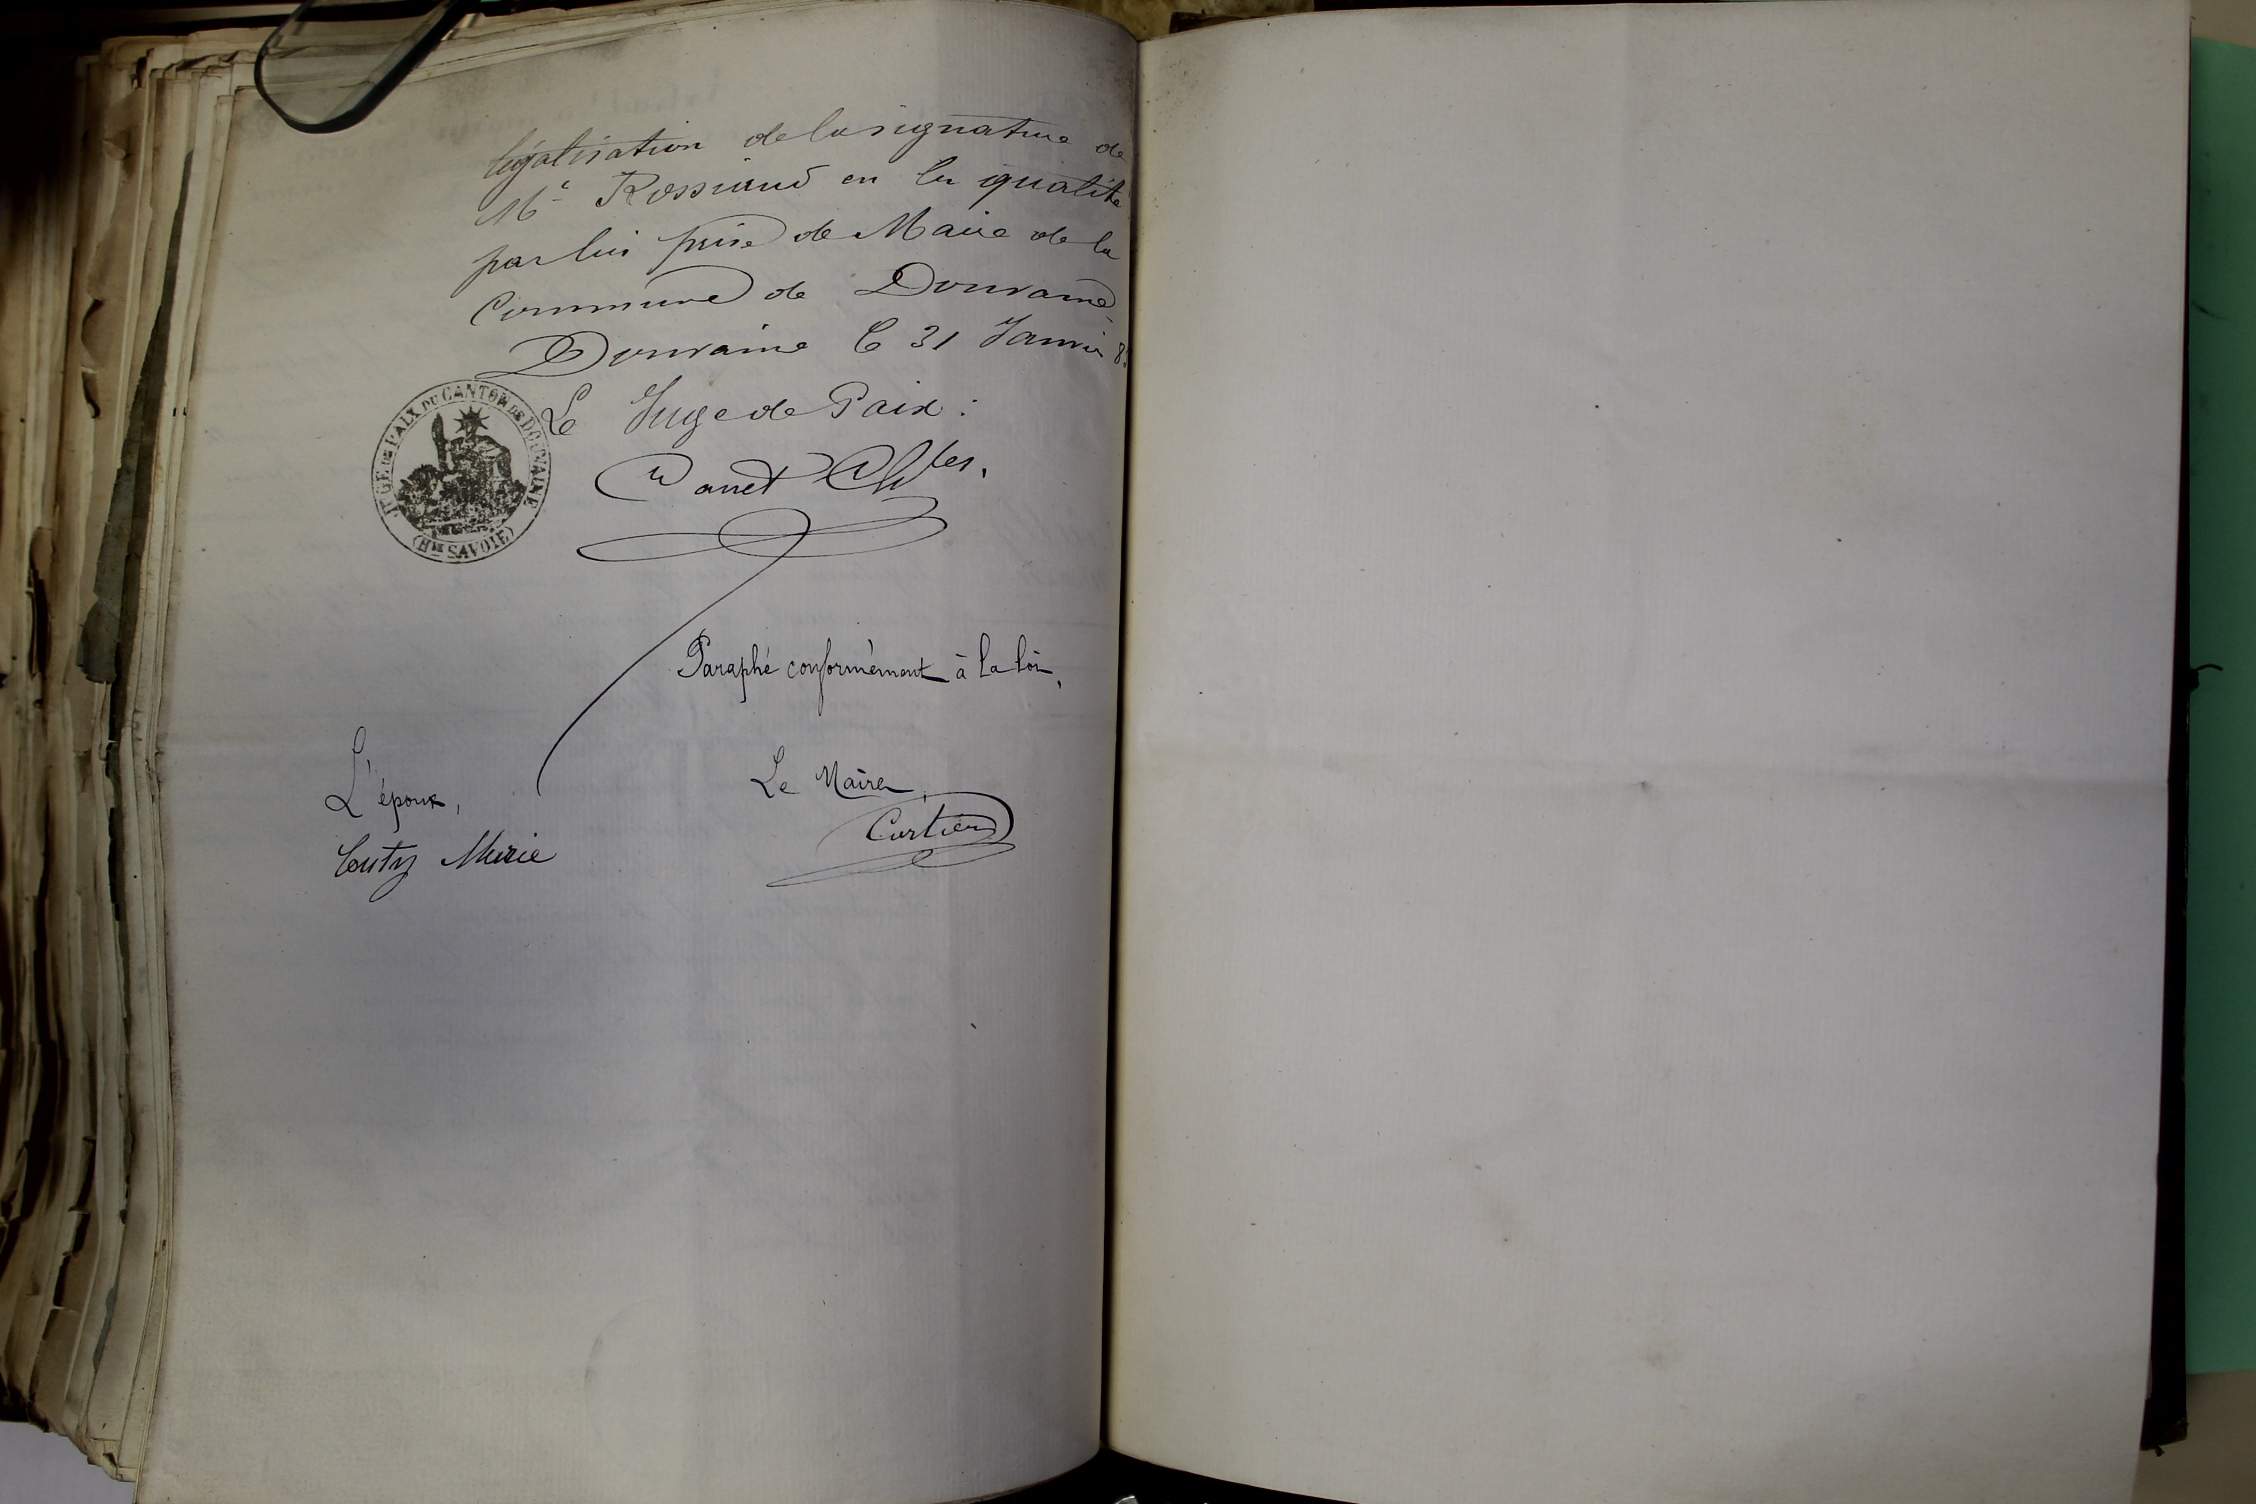 Légalisation de la signature de
Mr Rossiaud en la qualité
par lui prise de Maire de la
Commune de Douvaine
Douvaine le 31 Janvier
Le Juge de Paix :
JUGE DE PAIX DU CANTON DE DOUVAINE
(Hte SAVOIE)
Paraphé conformément à la loi,
L'époux,
Le Maire,
Cartier
Marie